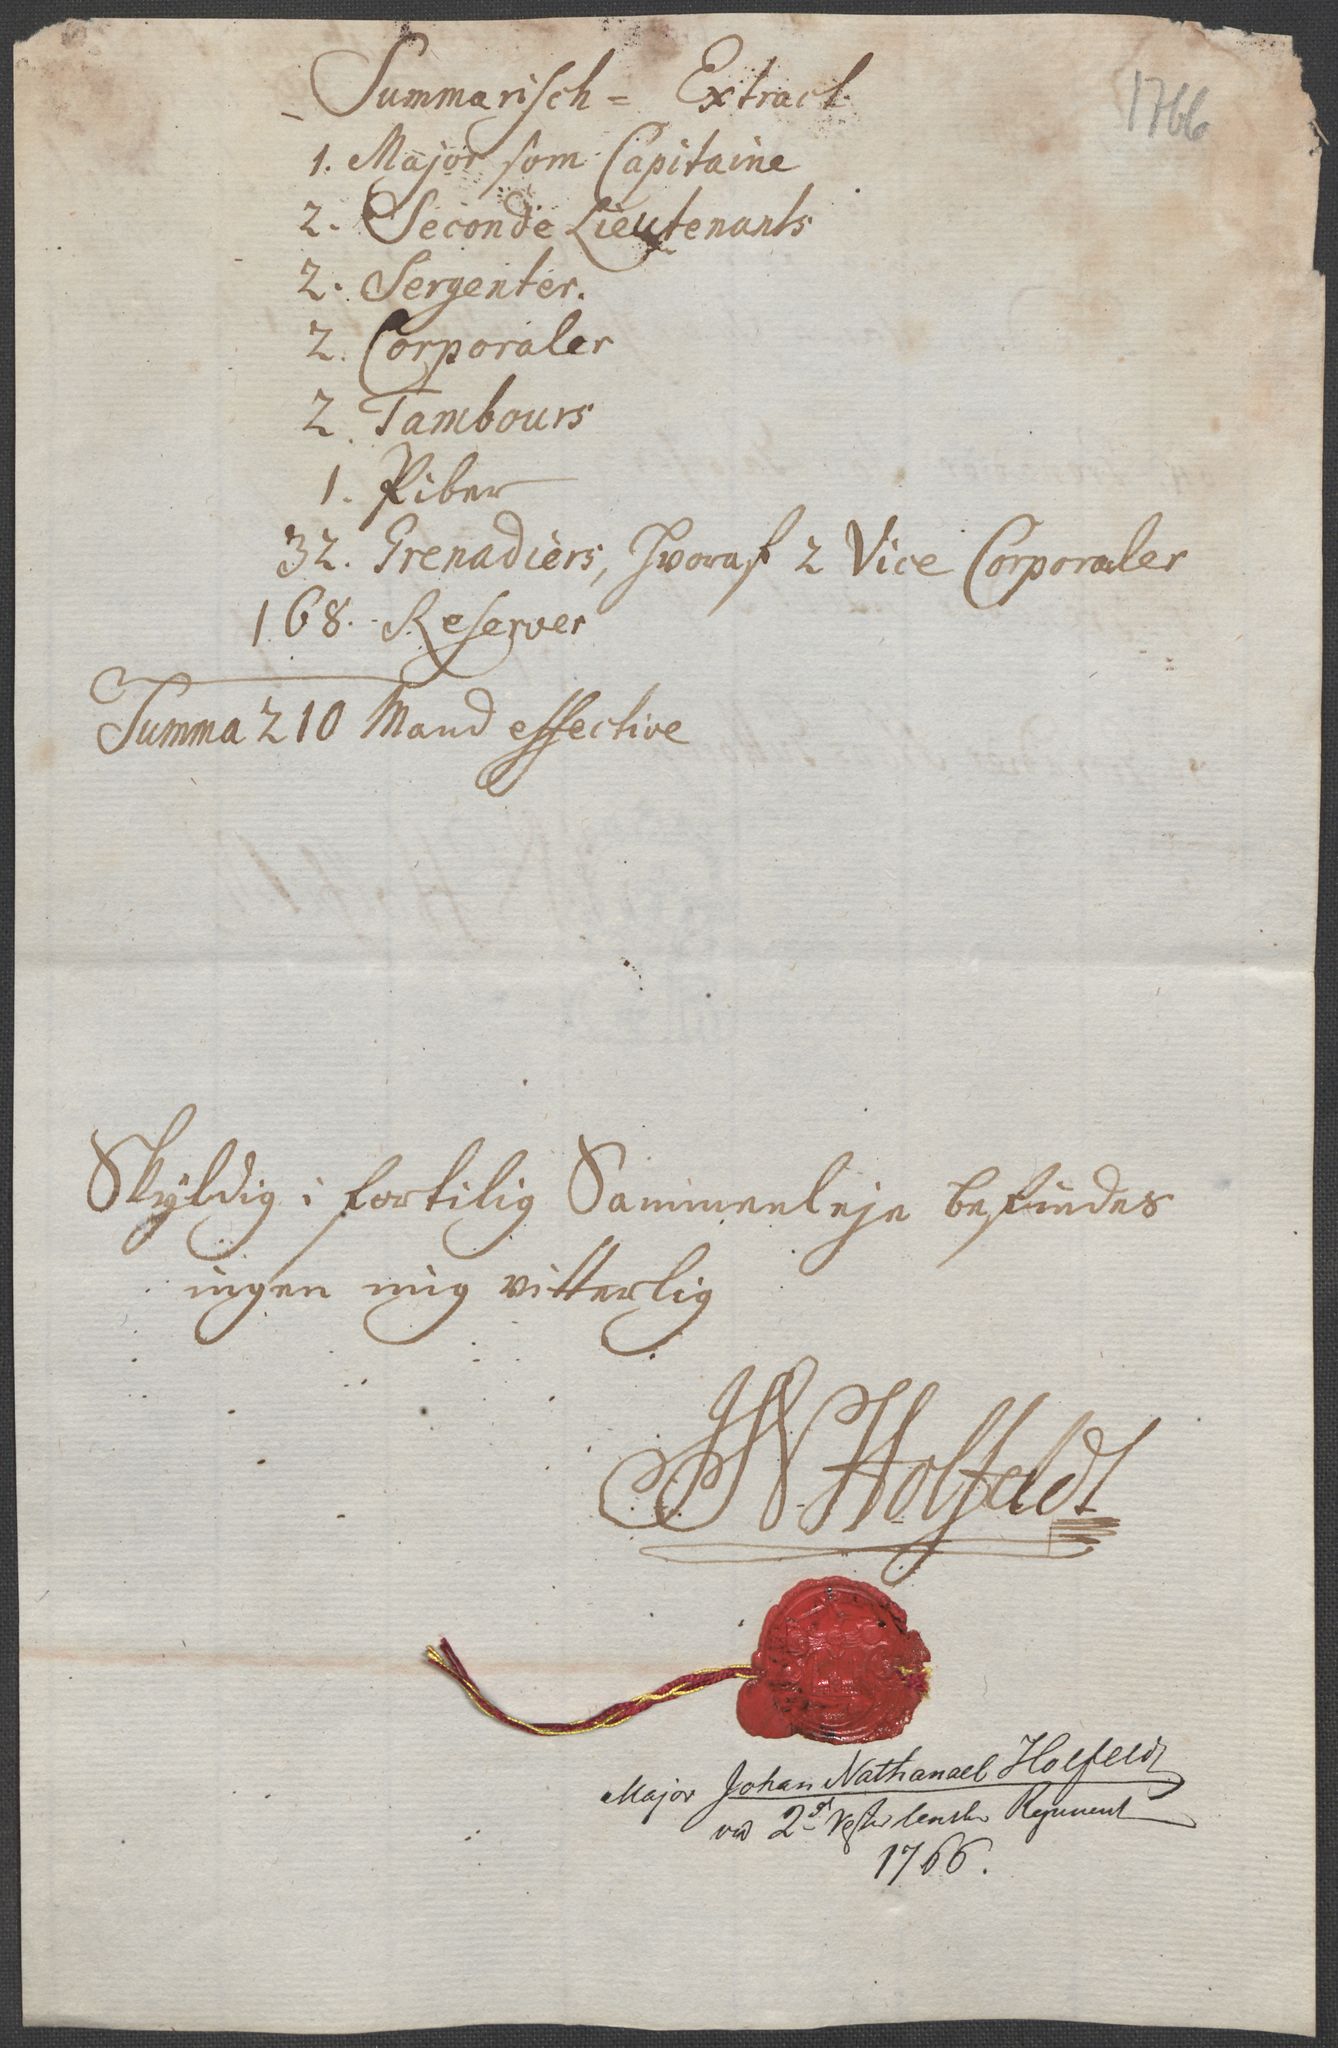 Summarisch = Extract
1766
1. Major som Capitaine
2. Seconde Lieutenants
2. Sergenter.
2. Corporaler
2. Tambours
1. Piber
32. Grenadiers, hvoraf 2 Vice Corporaler
168. Reserver
Summa 210 Mand effective
Skyldig i fortilig Sammenleje befindes
ingen mig vitterlig
JN Holfeldt
Major Johan Nathanael Holfeldt
ved 2det Vesterlenske Regiment
1766.